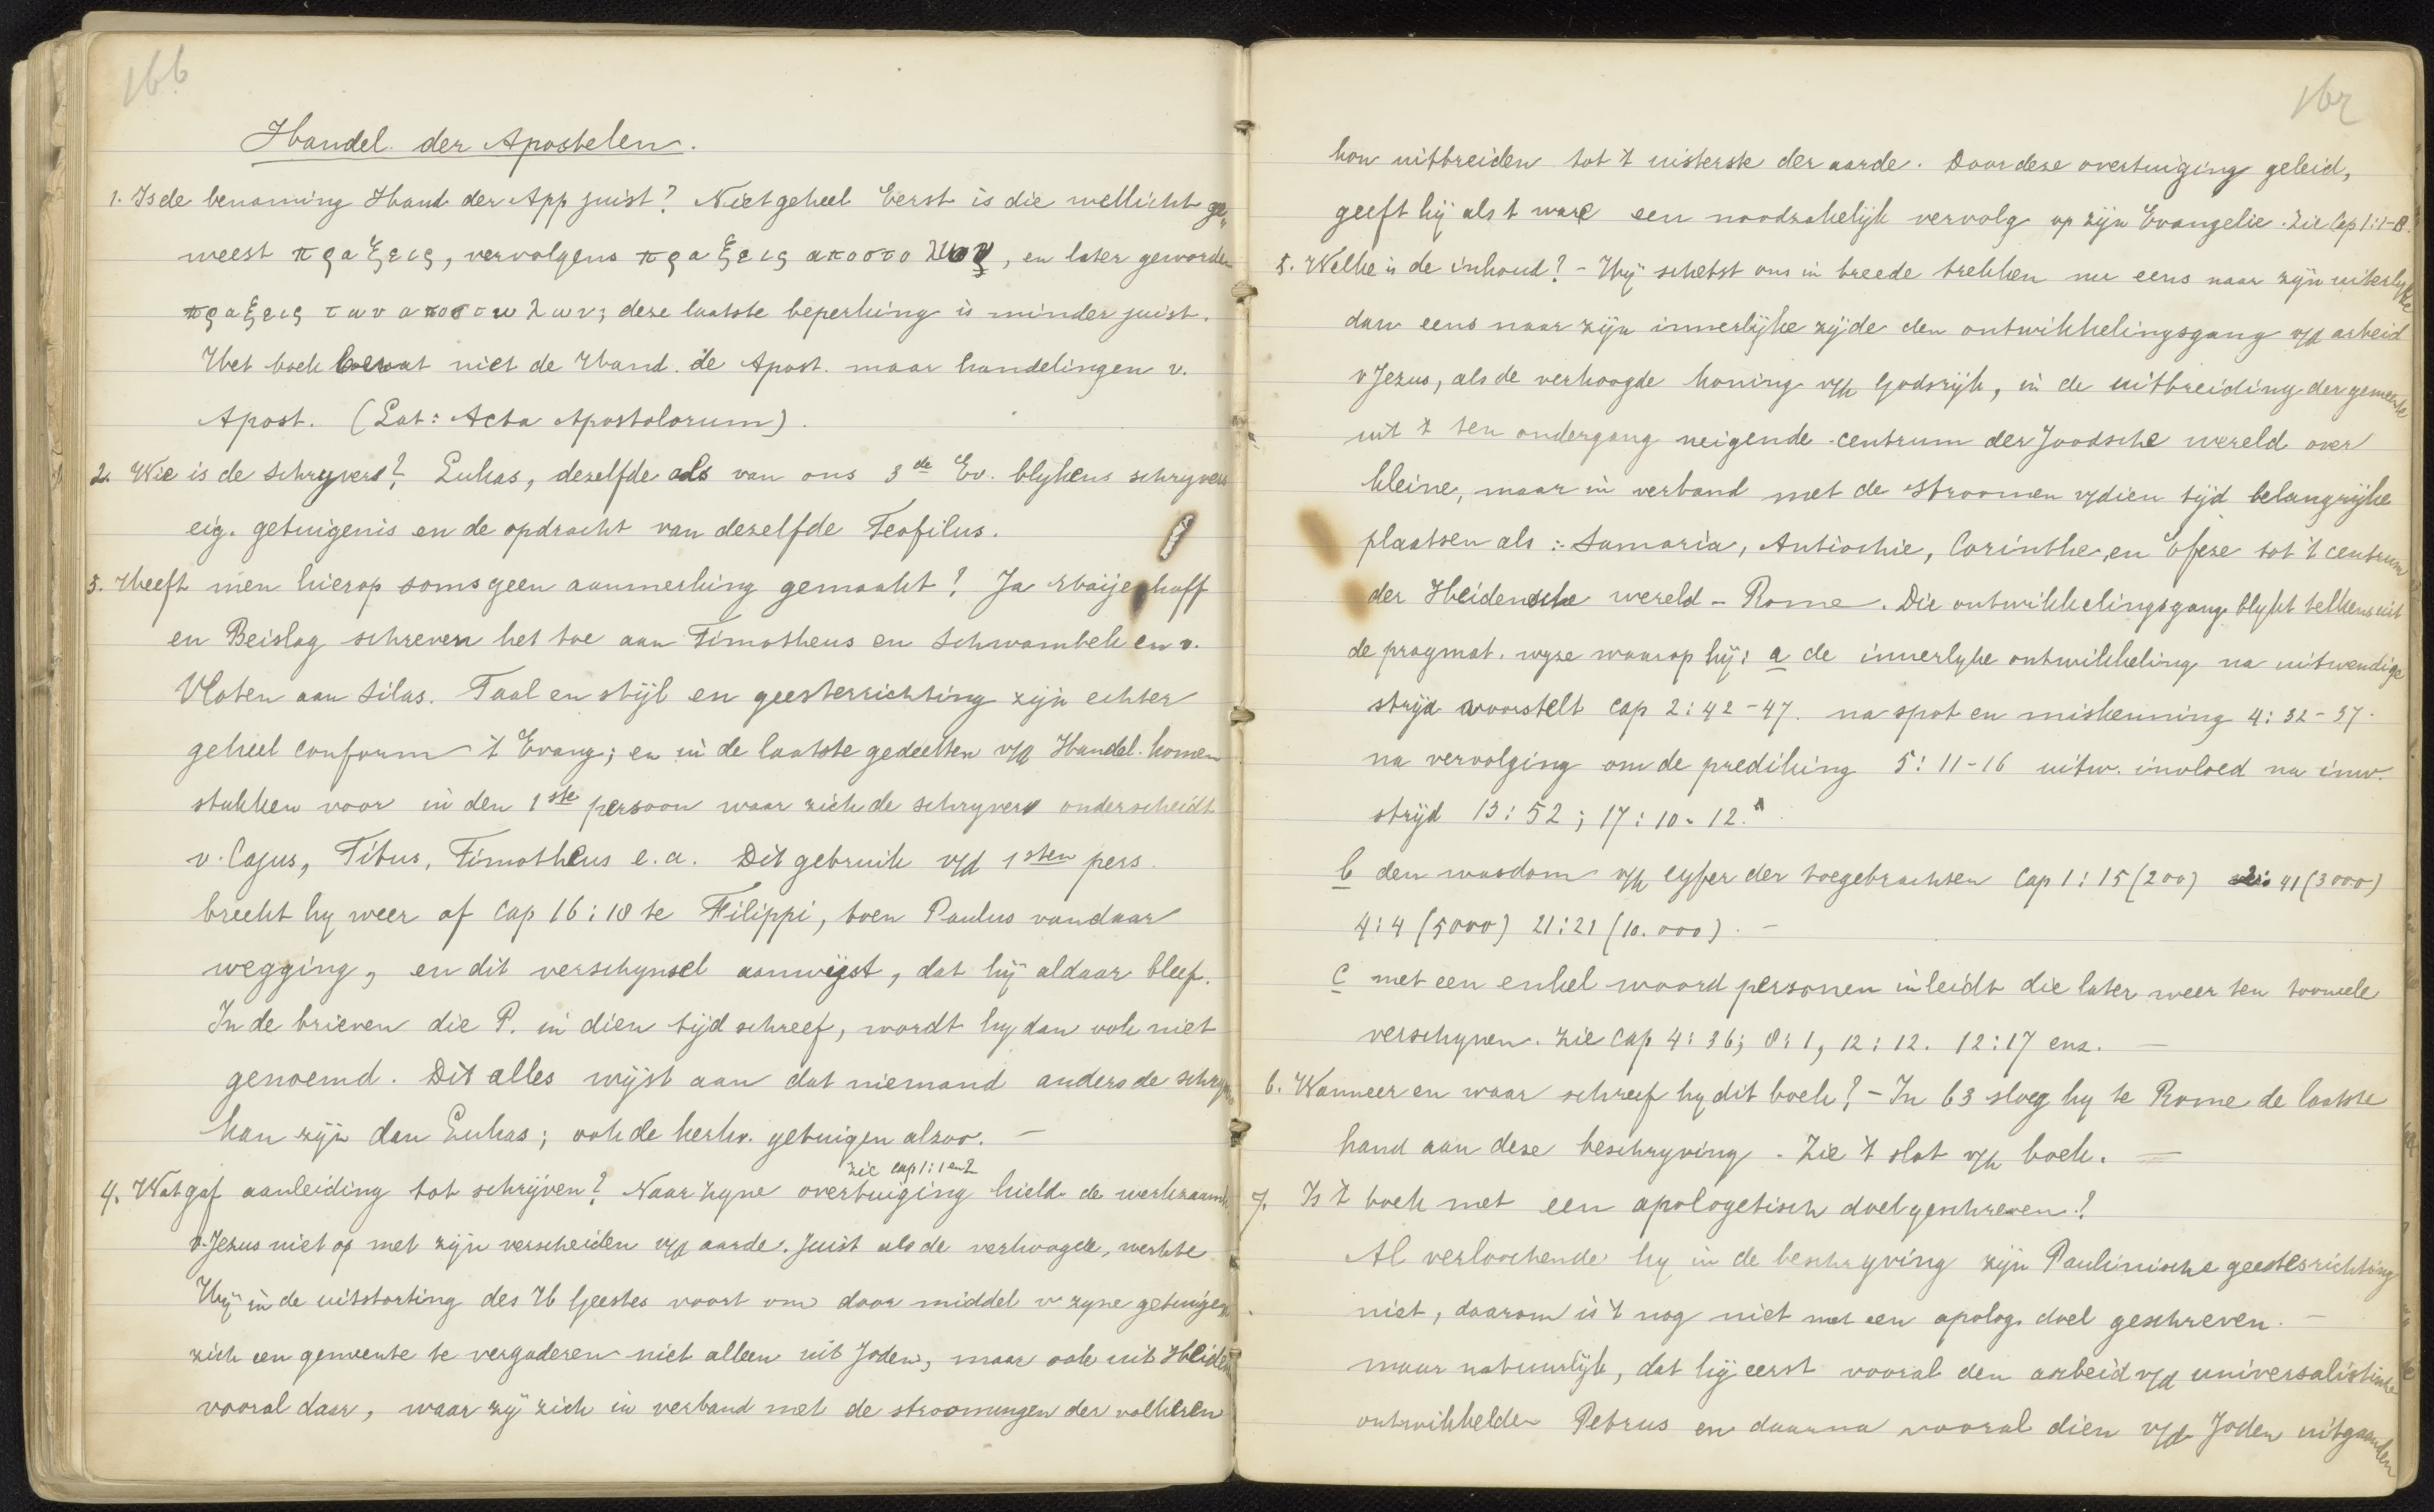 166
Handel. der Apostelen.
1. Is de benaming Hand der App juist? Niet geheel Eerst is die wellicht ge„
weest πραξεις, vervolgens πραξεις αποστολων, en later geworden
πραξεις των αποστωλων; deze laatste beperking is minder juist.
Het boek bevat niet de Hand. de Apost. maar handelingen v.
Apost. (Lat: Acta Apostolorum).
2. Wie is de schryver? Lukas, dezelfde als van ons 3de Ev. blykens schryvers
eig. getuigenis en de opdracht van dezelfde Teofilus.
3. Heeft men hierop soms geen aanmerking gemaakt? Ja Maijerhoff
en Beislag schreven het toe aan Timotheus en Schwambek en v.
Vloten aan Silas. Taal en stijl en geestesrichting zijn echter
geheel conform 't Evang; en in de laatste gedeelten v/d Handel. komen
stukken voor in den 1ste persoon waar zich de schryver onderscheidt
v. Cajus, Titus, Timotheus e.a. Dit gebruik v/d 1sten pers.
breekt hy weer af Cap 16:18 te Filippi, toen Paulus vandaar
wegging, en dit verschynsel aanwijst, dat hij aldaar bleef.
In de brieven die P. in dien tijd schreef, wordt hy dan ook niet
genoemd. Dit alles wijst aan dat niemand anders de schryver
kan zijn dan Lukas; ook de kerkv. getuigen alzoo. —
zie cap 1:1 en 2
4. Wat gaf aanleiding tot schrijven? Naar zyne overtuiging hield de werkzaamh.
v. Jezus niet op met zijn verscheiden v/d aarde. Juist als de verhoogde, werkte
Hij in de uitstorting des H Geestes voort om door middel v zyne getuigen
zich een gemeente te vergaderen niet alleen uit Joden, maar ook uit Heiden
vooral daar, waar zij zich in verband met de stroomingen der volkeren
167
kon uitbreiden tot 't uisterste der aarde. Door deze overtuiging geleid,
geeft hij als 't ware een noodzakelijk vervolg op zijn Evangelie. Zie Cap 1:1-8.
5. Welke is de inhoud? - Hij schetst ons in breede trekken nu eens naar zijn uiterlyke
dan eens naar zijn innerlijke zijde den ontwikkelingsgang v/d arbeid
v Jezus, als de verhoogde koning v/h Godsrijk, in de uitbreiding der gemeente
uit 't ten ondergang neigende centrum der Joodsche wereld over
kleine, maar in verband met de stroomen v/dien tijd belangrijke
plaatsen als :- Samaria, Antiochie, Corinthe, en Efeze tot 't centrum
der Heidensche wereld - Rome. Die ontwikkelingsgang blykt telkens uit
de pragmat. wyze waarop hij: a de innerlyke ontwikkeling na uitwendige
strijd voorstelt cap 2:42-47. na spot en miskenning 4:32-37.
na vervolging om de prediking 5:11-16 uitw. invloed na inw.
strijd 13:52; 17:10-12.
b den wasdom v/h cyfer der toegebrachten Cap 1:15 (200) 2:41 (3000)
4:4 (5000) 21:21 (10.000). —
c met een enkel woord personen inleidt die later weer ten tooneele
verschynen. Zie cap 4:36; 8:1, 12:12. 12:17 enz. —
6. Wanneer en waar schreef hy dit boek? - In 63 sloeg hy te Rome de laatste
hand aan deze beschryving. Zie 't slot v/h boek. —
7. Is 't boek met een apologetisch doel geschreven?
Al verloochende hy in de beschryving zijn Paulinische geestesrichting
niet, daarom is 't nog niet met een apolog. doel geschreven. —
maar natuurlijk, dat hij eerst vooral den arbeid v/d universalistische
ontwikkelden Petrus en daarna vooral dien v/d Joden uitgaanden